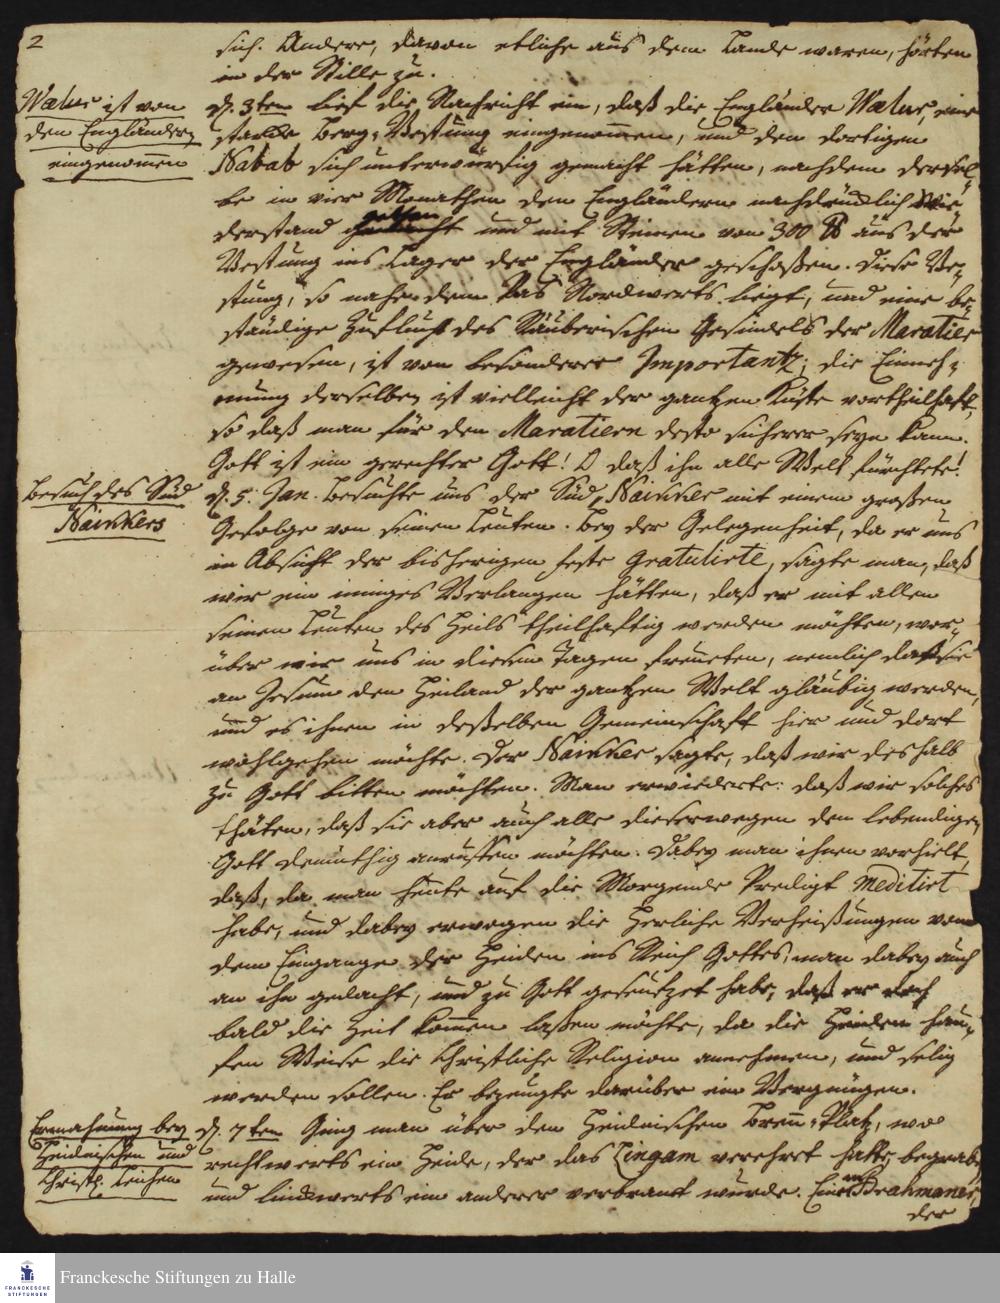 2
sich. Andere, davon etliche aus dem Lande waren, hörten
in der Stille zu.
Waelur ist von
den Engländern
eingenommen
d. 3ten lief die Nachricht ein, daß die Engländer Waelur, eine
starcke Berg-Vestung eingenommen, und den dortigen
Nabab sich unterwürfig gemacht hätten, nachdem dersel-
be in vier Monathen den Engländern nachdrücklich Wie-
derstand gethan und mit Steinen von 300 ℔ aus der
Vestung ins Lager der Engländer geschoßen. Diese Ve-
stung, so nahe dem Pas Nordwerts liegt, und eine be-
ständige Zuflucht des Räuberischen Gesindels der Maratier
gewesen, ist von besonderer Importantz; die Einneh-
mung derselben ist vielleicht der gantzen Küste vortheilhaft,
so daß man für den Maratiern desto sicherer seyn kann.
Gott ist ein gerechter Gott! O daß ihn alle Welt fürchtete!
Besuch des Süd
Nainkers
d. 5. Jan. besuchte uns der Süd-Nainker mit einem großen
Gefolge von seinen Leuten. Bey der Gelegenheit, da er uns
in Absicht der bisherigen feste gratulirte, sagte man, daß
wir ein inniges Verlangen hätten, daß er mit allen
seinen Leuten des Heils theilhaftig werden möchten, wor-
über wir uns in diesen Tagen freueten, nemlich daß sie
an Jesum den Heiland der gantzen Welt gläubig werden,
und es ihnen in deßelben Gemeinschaft hier und dort
wohlgehen möchte. Der Nainker sagte, daß wir deshalb
zu Gott bitten möchten. Man erwiederte: daß wir solches
thäten, daß sie aber auch alle dieserwegen den lebendigen
Gott demüthig anruffen möchten. Dabey man ihnen vorhielt,
daß, da man heute auf die Morgende Predigt meditirt
habe, und dabey erwogen die Herliche Verheißungen von
dem Eingange der Heiden ins Reich Gottes, man dabey auch
an ihn gedacht, und zu Gott geseufzet habe, daß er doch
bald die Zeit kommen laßen möchte, da die Heiden hau-
fen Weise die Christliche Religion annehmen, und selig
werden sollen. Er bezeugte darüber ein Vergnügen.
Ermahnung bey
Heidnischen und
Christl. Leichen
d. 7ten Ging man über den Heidnischen Brenn-Platz, wo
rechtwerts ein Heide, der das Lingam verehret hatte, begraben
und linckwerts ein anderer verbrant wurde. Einem Brahmaner,
der
Franckesche Stiftungen zu Halle
FRANCKESCHE
STIFTUNGEN